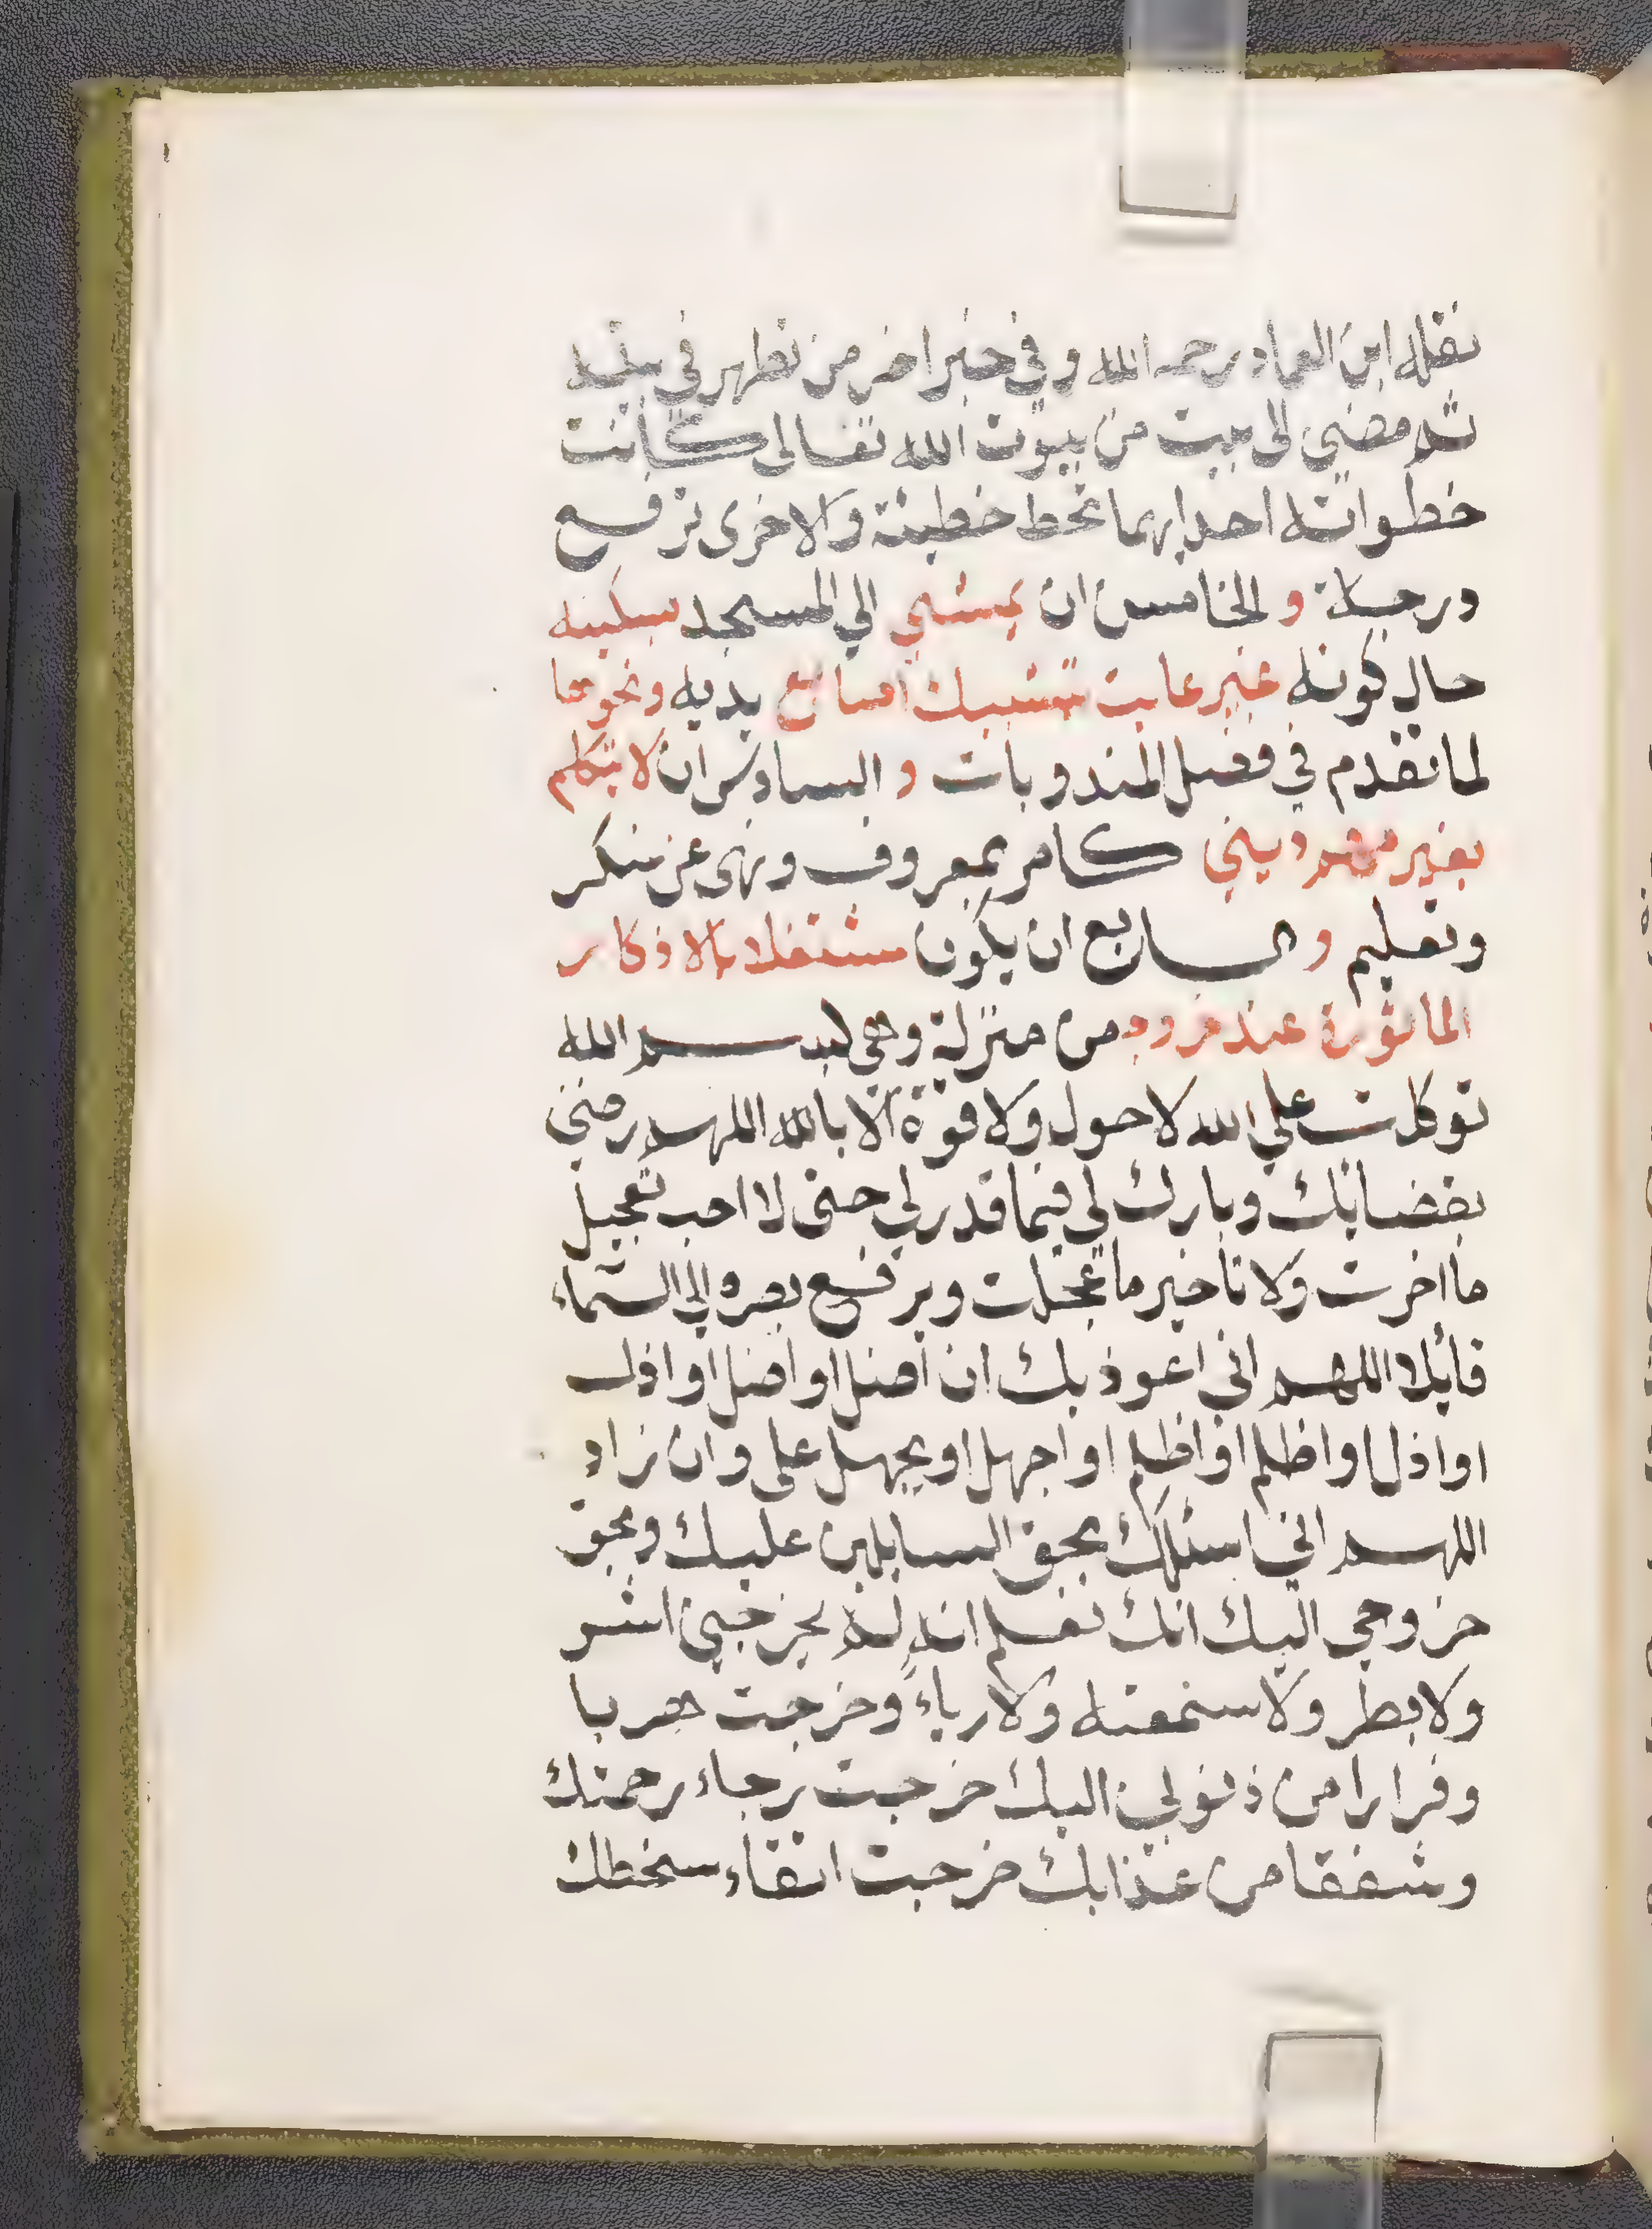 نقله ابن العماد رحمه الله وفي خبر اخر من تطهر في بيته
ثم مضى الى بيت من بيوت الله تعالى كانت
خطواته احداهما تحط خطيئة والاخرى ترفع
درجة و الخامس ان يمشي الي المسجد بسكينه
حال كونه غير عابث بتشبيك اصابع يديه ونحوها
لما تقدم في فصل المندوبات و السادس ان لا يتكلم
بغير مهم ديني كامر بمعروف ونهى عن منكر
وتعليم و السابع ان يكون مشتغلا بالاذكار
الماثورة عند خروجه من منزله وهي بسم الله
توكلت علي الله لا حول ولا قوة الا بالله اللهم رضني
بقضائك وبارك لي فيما قدر لي حتى لا احب تعجيل
ما اخرت ولا تاخير ما عجلت ويرفع بصره الى السماء
قائلا اللهم اني اعوذ بك ان اضل او اضل او اذل
او اذل او اظلم او اظلم او اجهل او يجهل على وان زاد
اللهم اني اسئلك بحق السايلين عليك وبحق
خروجي اليك انك تعلم انه لم يخرجني اشر
ولا بطر ولا سمعته ولا رياء وخرجت هربا
وفرارا من ذنوبي اليك خرجت رجاء رحمتك
وشفقا من عذابك خرجت اتقاء سخطك